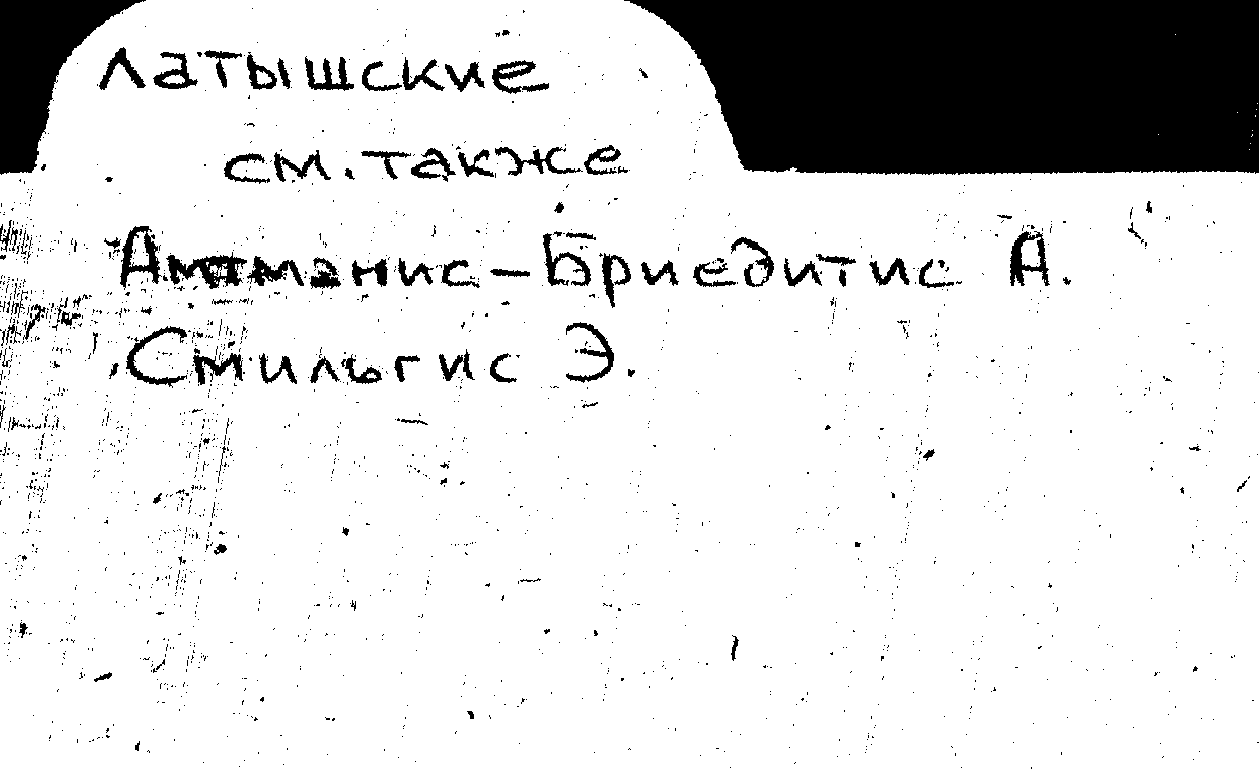 Латышские
см. также
Амтманис-Бриедитис А.
Смильгис Э.